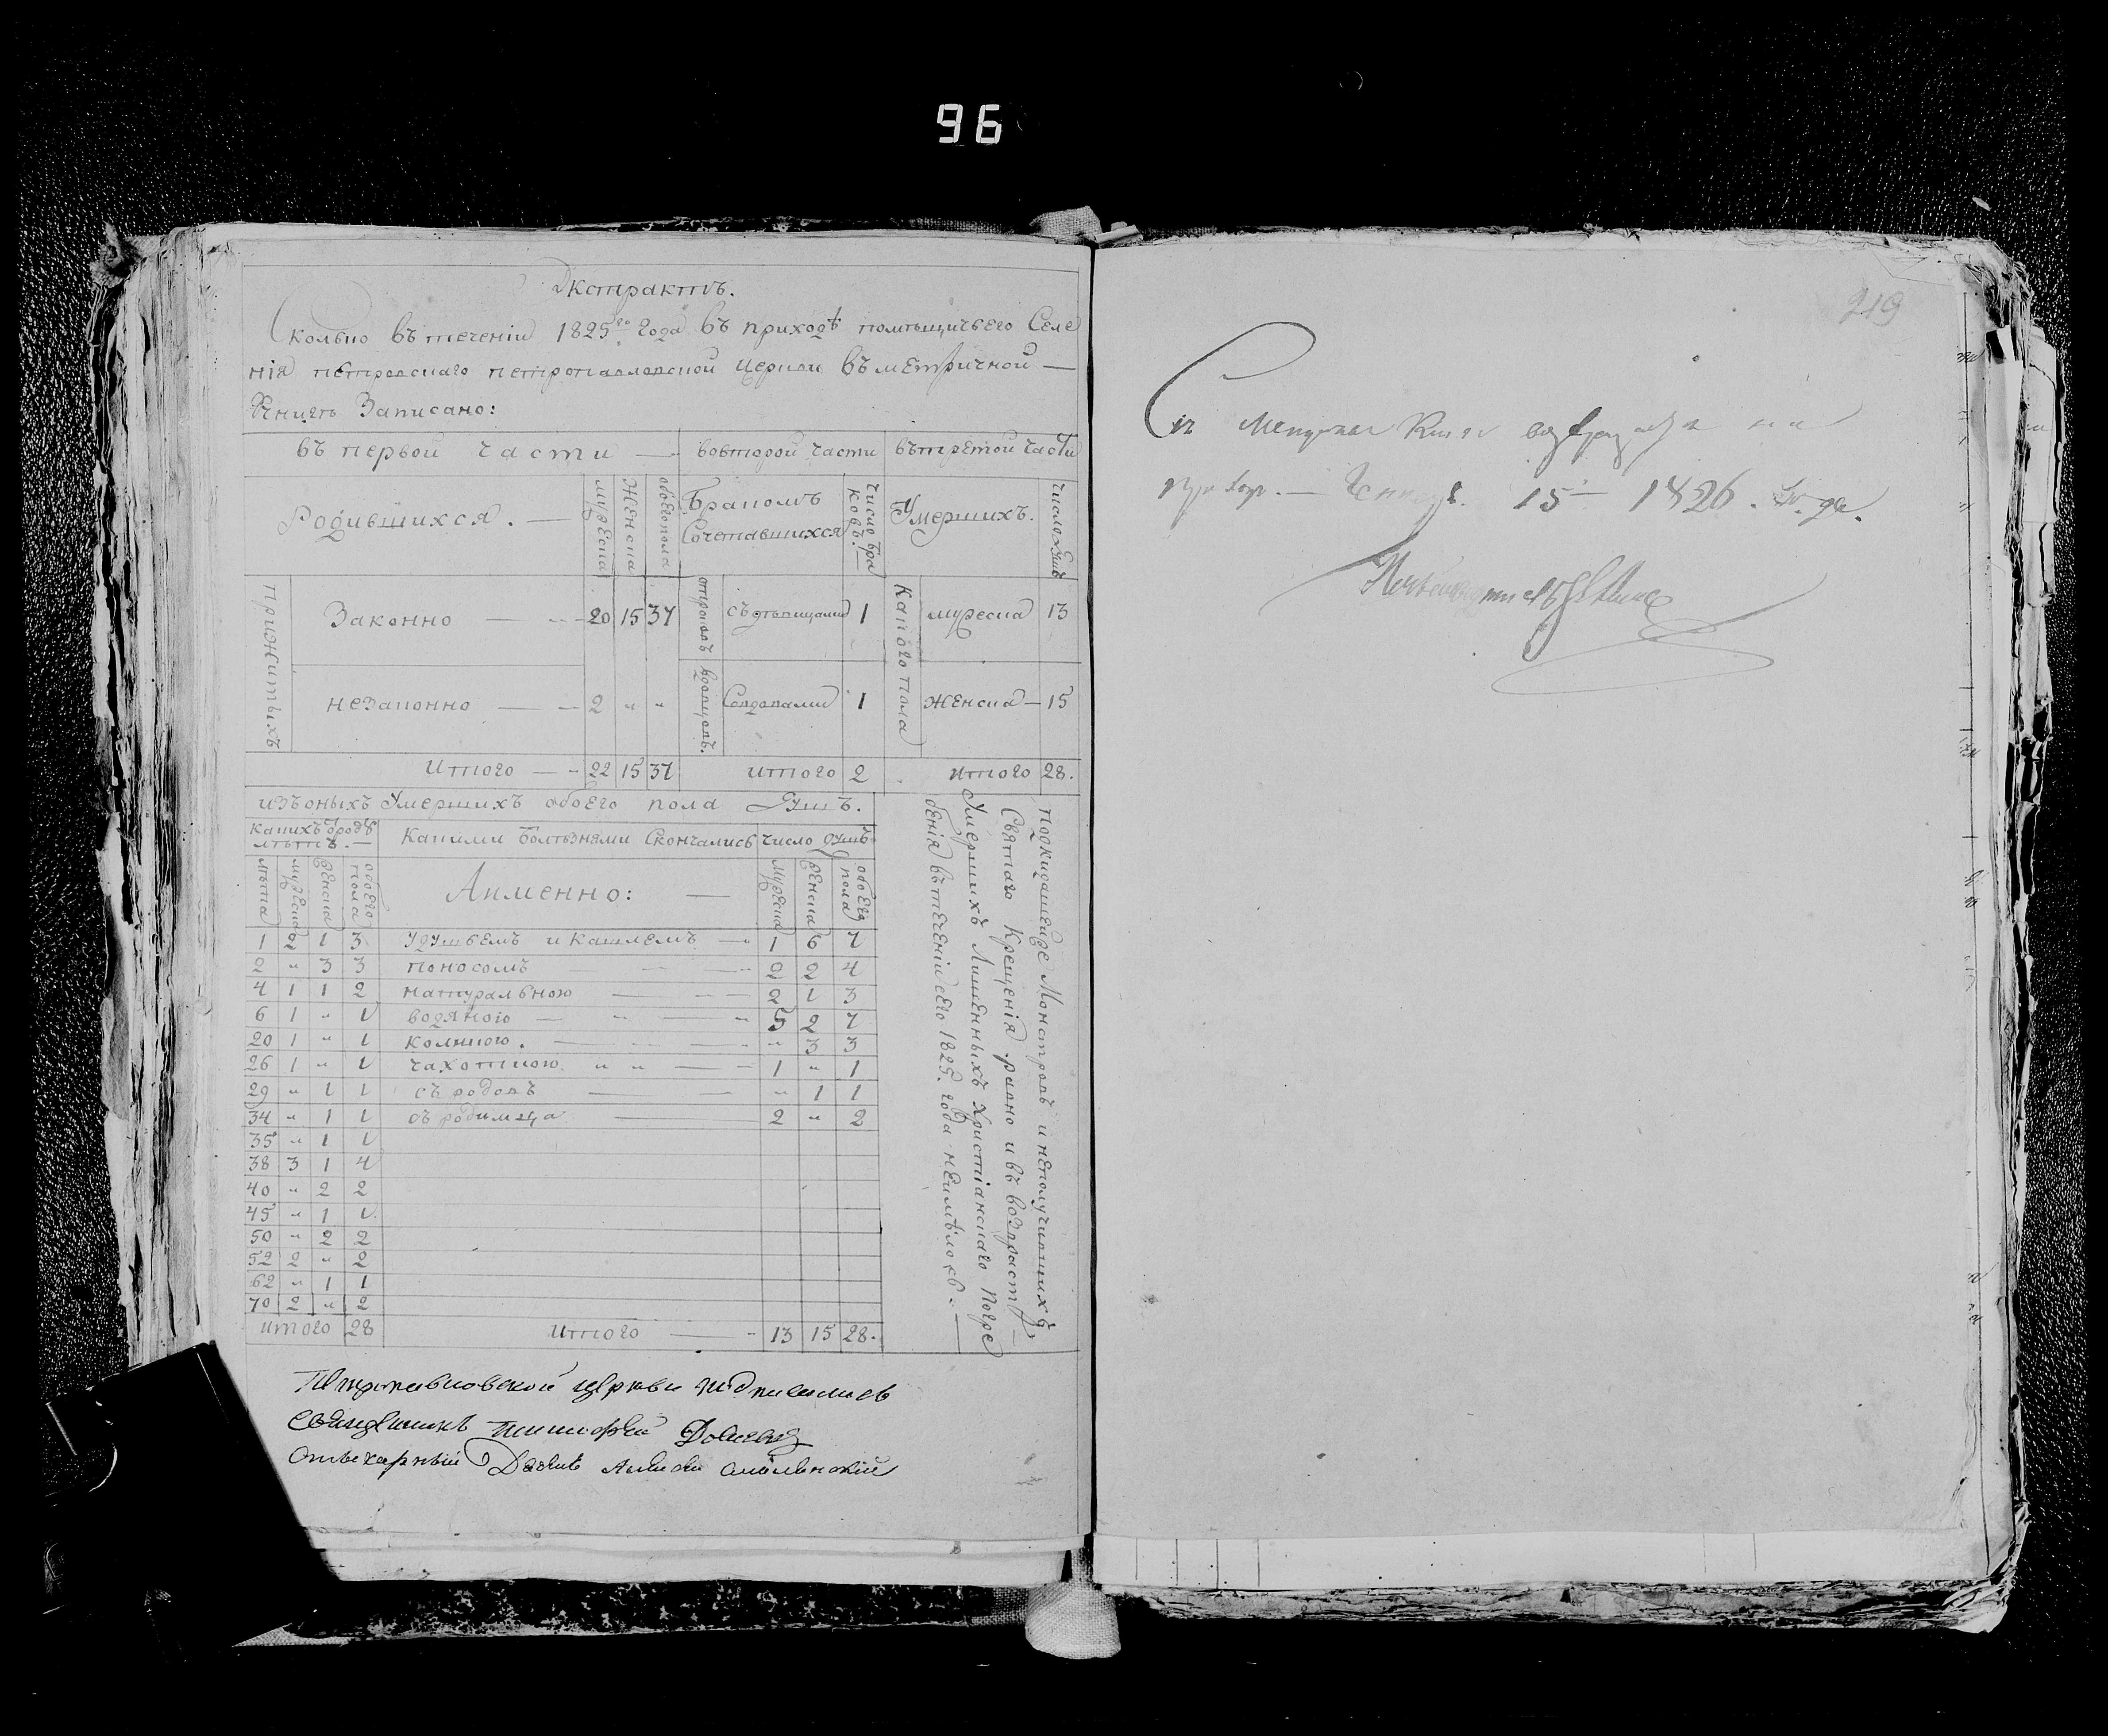 96
Экстрактъ.
Сколько въ теченіи 1825го года въ приходѣ помѣщичьего Селе
нія петровскаго петропавловской церкви въ метричной —
Книгѣ Записано:
въ первой части — вовторой части вътретой части
Родившихся. — мужеска женска обоегопола Бракомъ Сочетавшихся число бра ковъ. Умершихъ. число душъ
прижитыхъ
Законно — 20 15 37 отроковъ съ дѣвицами 1 какого пола мужеска 13
незаконно — 2 „ „ вдовцовъ. Совдовами 1 женска — 15
Итого — 22 15 37 итого 2 итого 28.
изъоныхъ Умершихъ обоего пола Душъ.
какихъ родъ лѣтъ. — какими болѣзнями Скончались число душъ
лѣта мужеска женска обоего пола Аименно: — мужеска женска обоего пола
1 2 1 3 удушьемъ и кашлемъ — 1 6 7
2 „ 3 3 поносомъ — 2 2 4
4 1 1 2 натуральною — 2 1 3
6 1 „ 1 водяною — 5 2 7
20 1 „ 1 коликою. — „ 3 3
26 1 „ 1 чахоткою „ „ — 1 „ 1
29 „ 1 1 съ родовъ — „ 1 1
34 „ 1 1 съ родимца — 2 „ 2
35 „ 1 1
38 3 1 4
40 „ 2 2
45 „ 1 1
50 „ 2 2
52 2 „ 2
62 „ 1 1
70 2 „ 2
итого 28 Итого — 13 15 28.
подкидышей Монстровъ и неполучившихъ
Святаго Крещенія равно и въ возрастѣ
Умершихъ Лишенныхъ Христіанскаго Погре
бенія въ теченіи сего 1825. года неимѣлось. —
Петропавловской церкви подписались
Священникъ Тимофей
Дьячекъ
219
Сія Книга
15 — 1826. года.